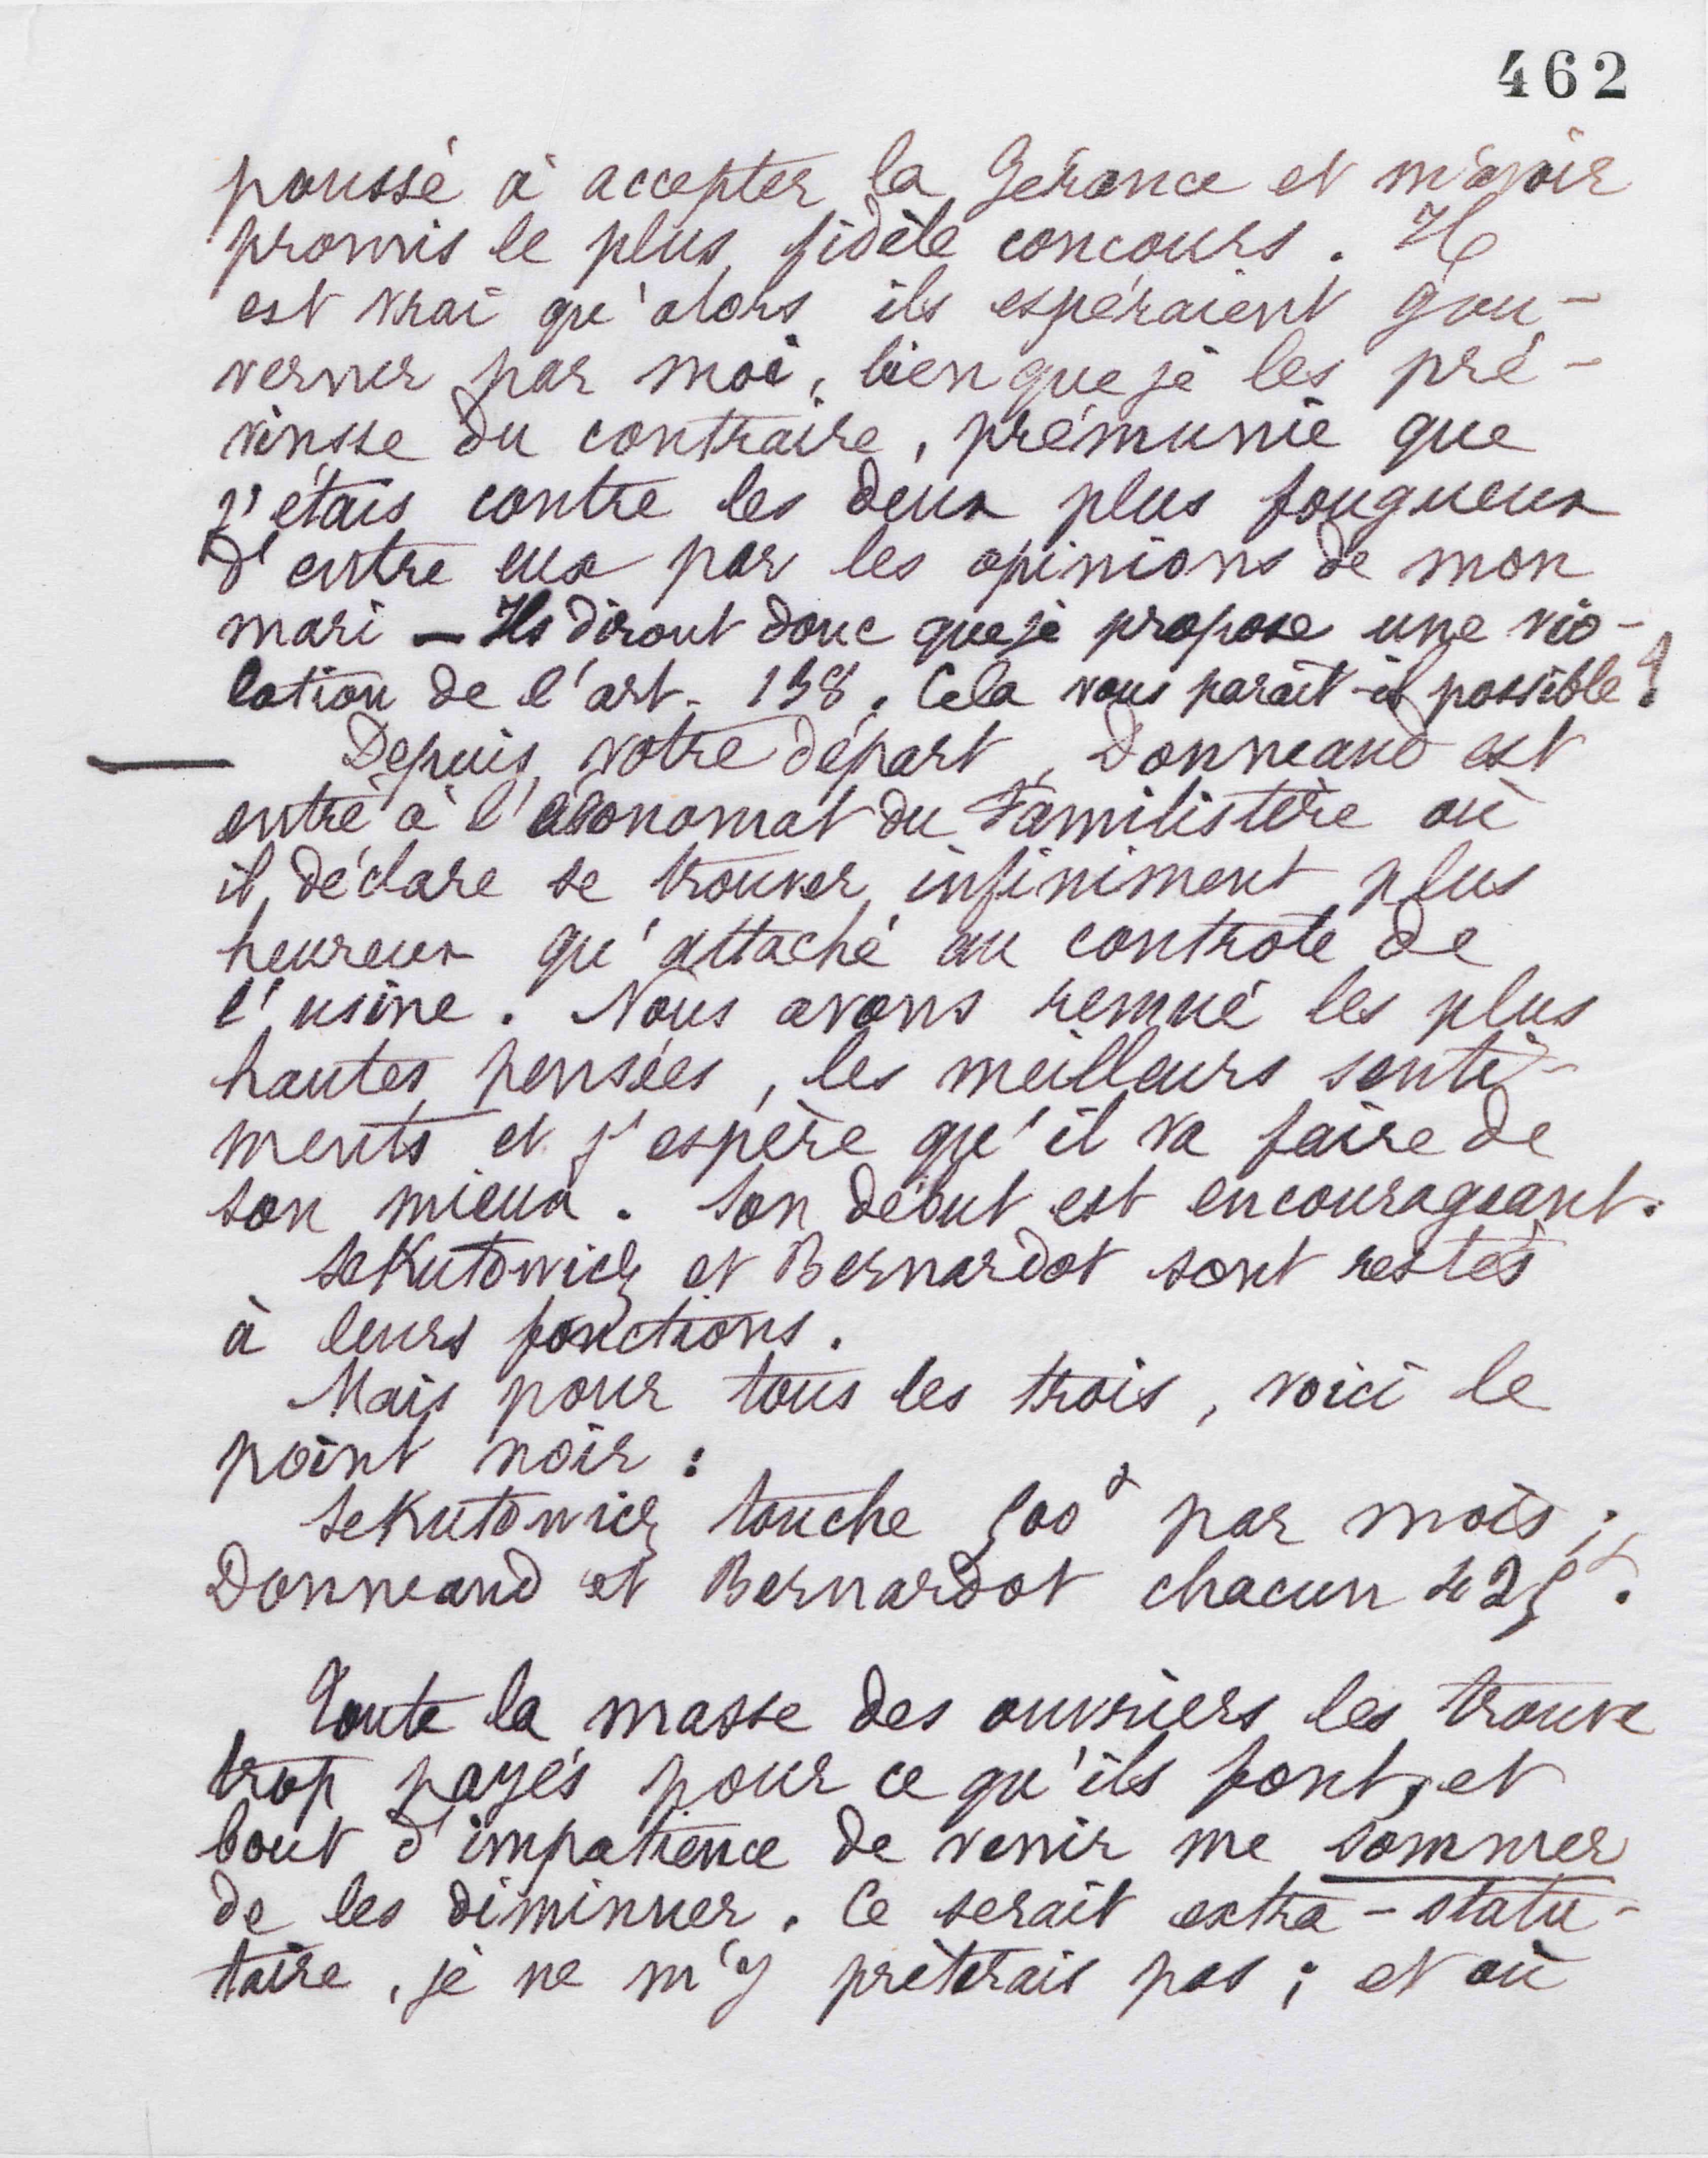 462
poussé à accepter la Gérance et m'avoir
promis le plus fidèle concours. Il
est vrai qu'alors ils espéraient gou-
verner par moi, bien que je les pré-
vinsse du contraire, prémunie que
j'étais contre les deux plus fougueux
d'entre eux par les opinions de mon
mari — Ils diront donc que je propose une vio-
lation de l'art. 138. Cela vous paraît-il possible?
Depuis votre départ, Donneaud est
entré à l'économat du Familistère où
il déclare se trouver infiniment plus
heureux qu'attaché au contrôle de
l'usine. Nous avons remué les plus
hautes pensées, les meilleurs senti-
ments et j'espère qu'il va faire de
son mieux. Son début est encourageant.
Sekutowicz et Bernardot sont restés
à leurs fonctions.
Mais pour tous les trois, voici le
point noir :
Sekutowicz touche 500f par mois ;
Donneaud et Bernardot chacun 425f.
Toute la masse des ouvriers les trouve
trop payés pour ce qu'ils font, et
bout d'impatience de venir me sommer
de les diminuer. Ce serait extra-statu-
taire, je ne m'y prêterais pas ; et où